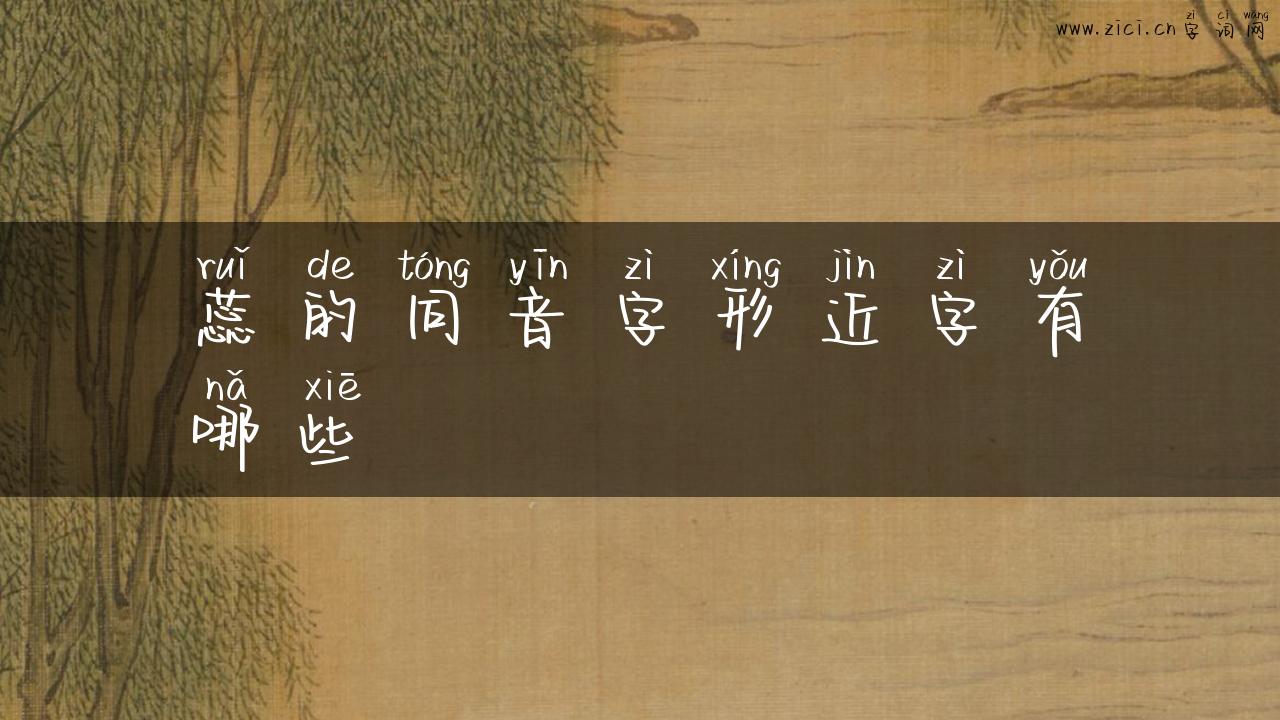 zì cí wǎng
www.zici.cn 字词网
ruǐ de tóng yīn zì xíng jìn zì yǒu
蕊的同音字形近字有
nǎ xiē
哪些